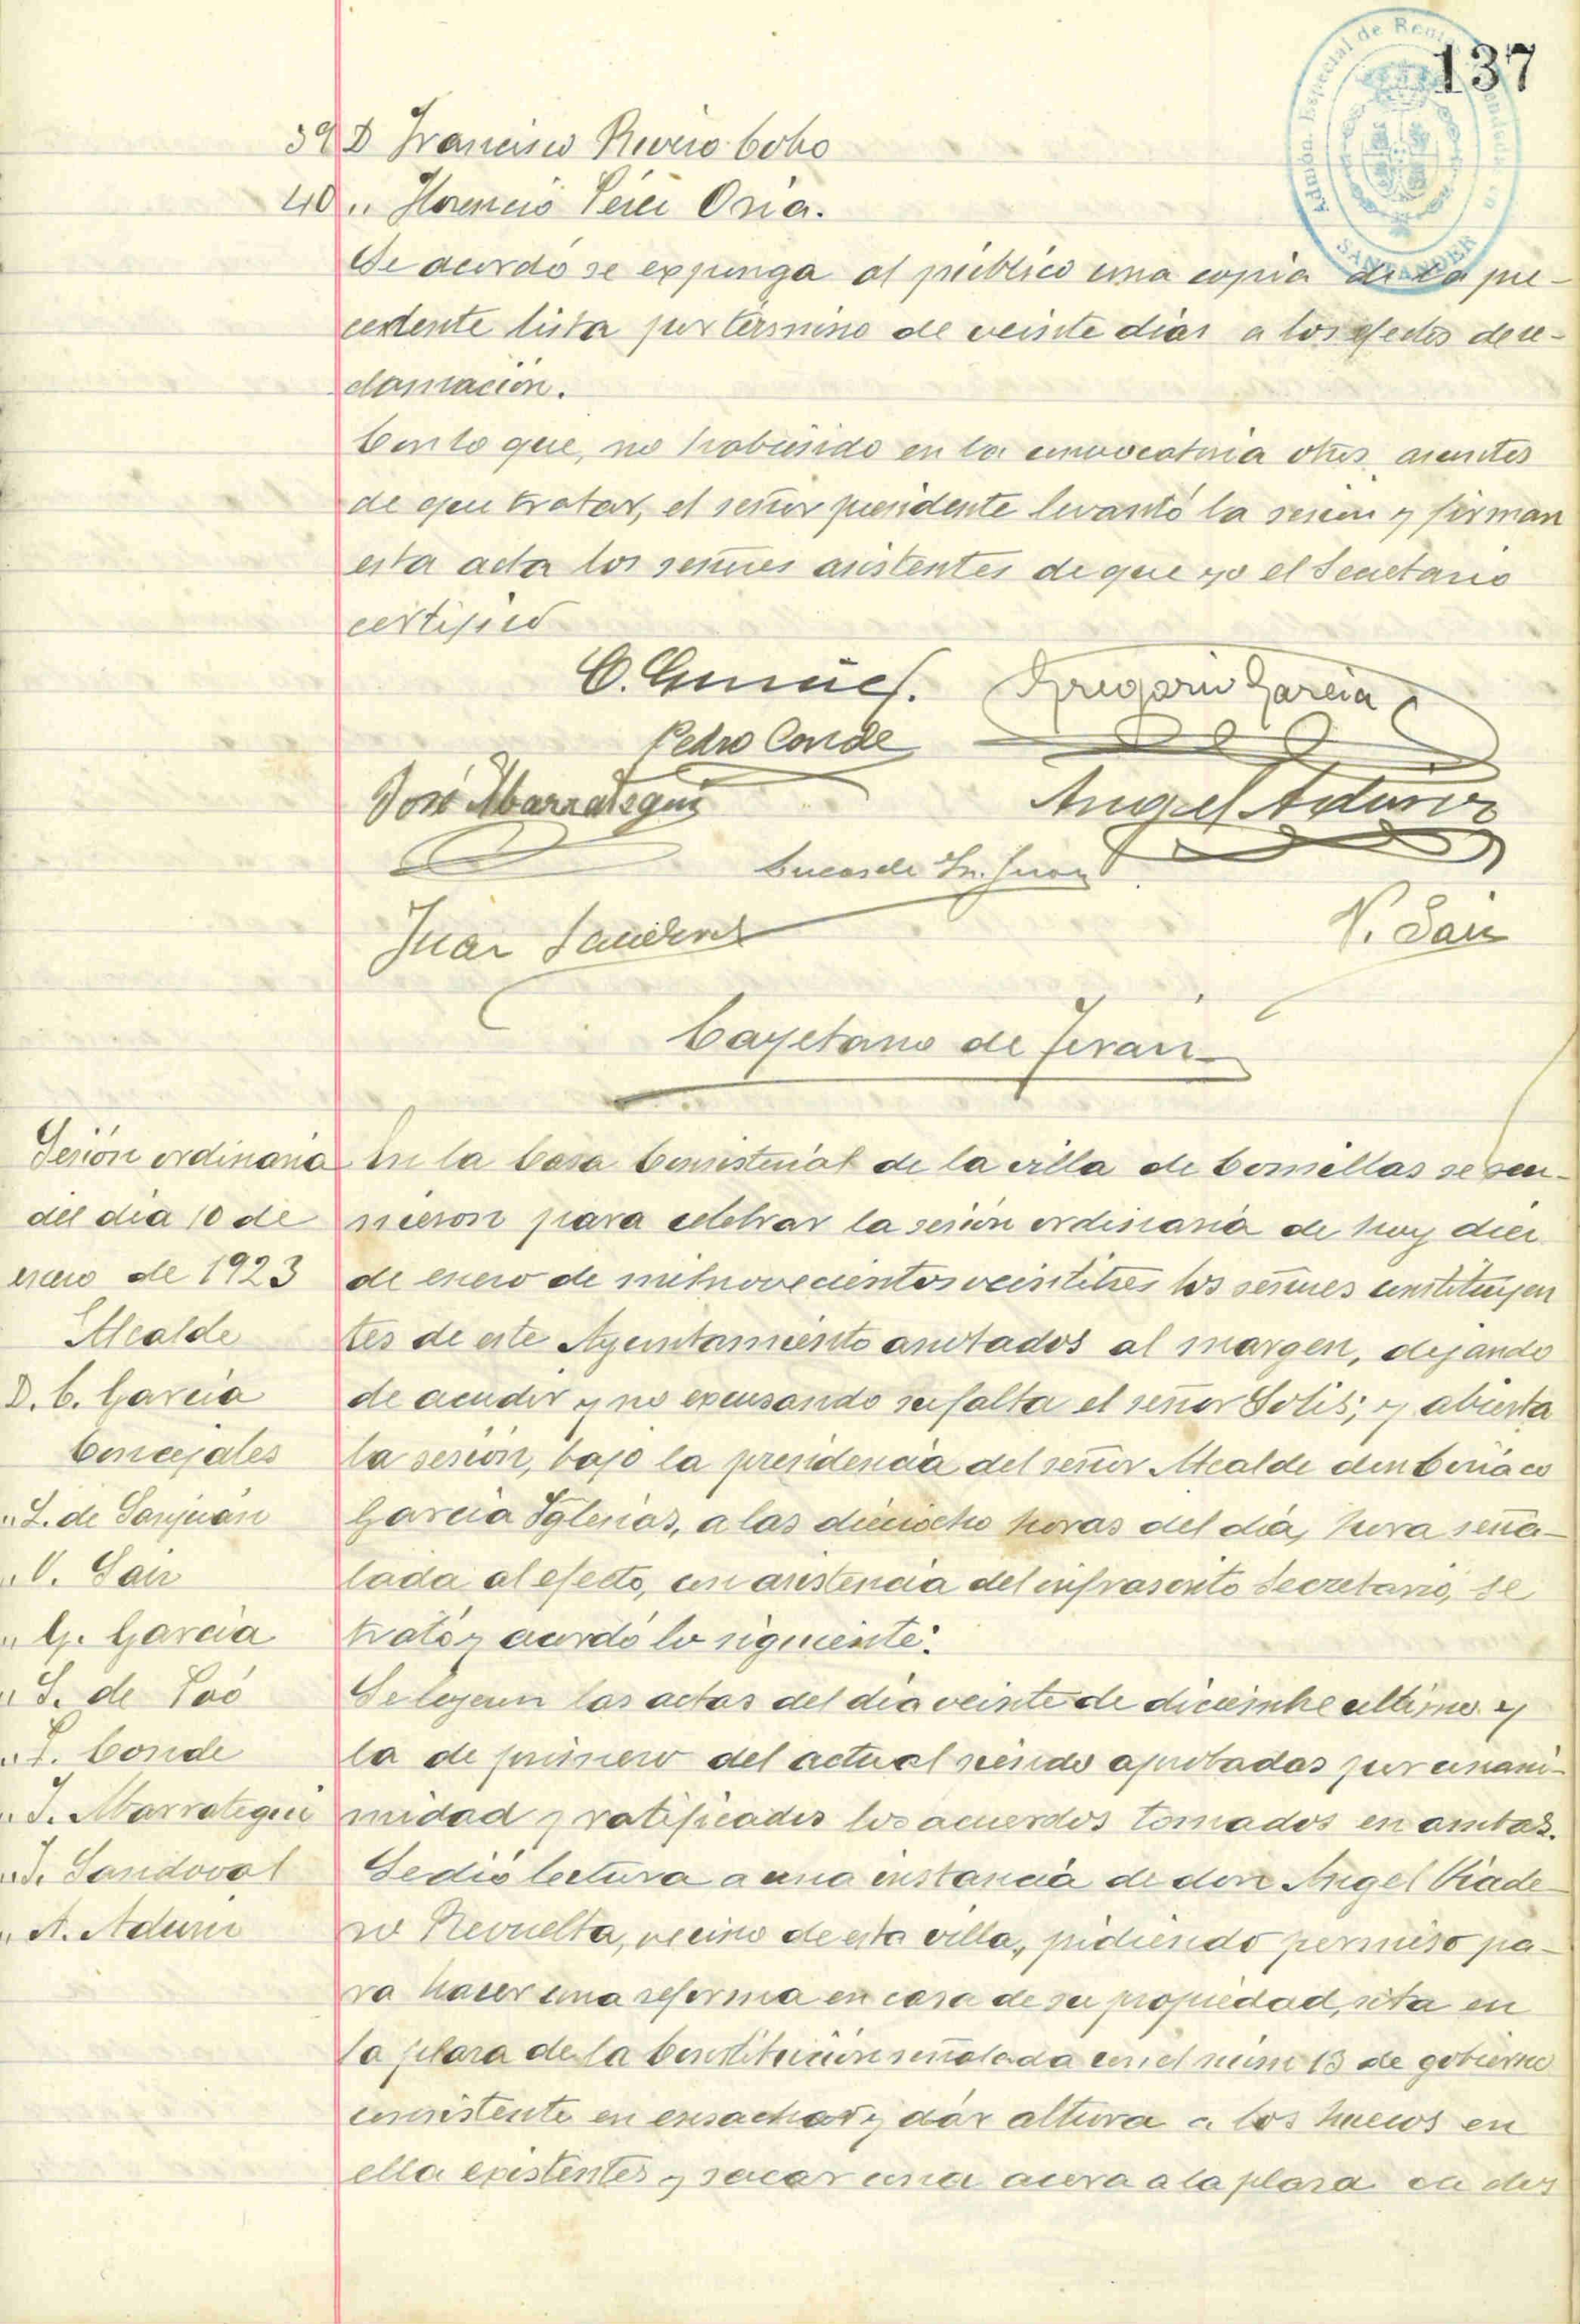 137
Admón. Especial de Rentas
SANTANDER
39 D Francisco Rivero Cobo
40 " Florencio Pérez Oria.
Se acordó se exponga al público una copia de la pre-
cedente lista por término de veinte días a los efectos de re-
clamación.
Con lo que, no habiendo en la convocatoria otros asuntos
de que tratar, el señor presidente levantó la sesión y firman
esta acta los señores asistentes de que yo el Secretario
certifico
Gregorio Garcia
Pedro Conde
José Abarrategui
Angel Aduriz
Lucas de Sn. Juan
Juan Sandoval
V. Saiz
Cayetano de Teran
Sesión ordinaria
del día 10 de
enero de 1923
Alcalde
D. C. García
Concejales
" L. de Sanjuán
" V. Saiz
" G. García
" S. de Poó
" P. Conde
" J. Abarrategui
" J. Sandoval
" A. Aduriz
En la Casa Consistorial de la villa de Comillas se reu-
nieron para celebrar la sesión ordinaria de hoy diez
de enero de mil novecientos veintitres los señores constituyen
tes de este Ayuntamiento anotados al margen, dejando
de acudir y no excusando su falta el señor Solis; y abierta
la sesión, bajo la presidencia del señor Alcalde don Ciriaco
García Iglesias, a las dieciocho horas del día, hora seña-
lada al efecto, con asistencia del infrascrito Secretario, se
trató y acordó lo siguiente:
Se leyeron las actas del día veinte de diciembre último y
la de primero del actual siendo aprobadas por unani-
midad y ratificados los acuerdos tomados en ambas.
Se dió lectura a una instancia de don Angel Viade-
ro Revuelta, vecino de esta villa, pidiendo permiso pa-
ra hacer una reforma en casa de su propiedad, sita en
la plaza de la Constitución señalada con el núm 13 de gobierno
consistente en ensachar y dár altura a los huecos en
ella existentes y sacar una acera a la plaza en dos